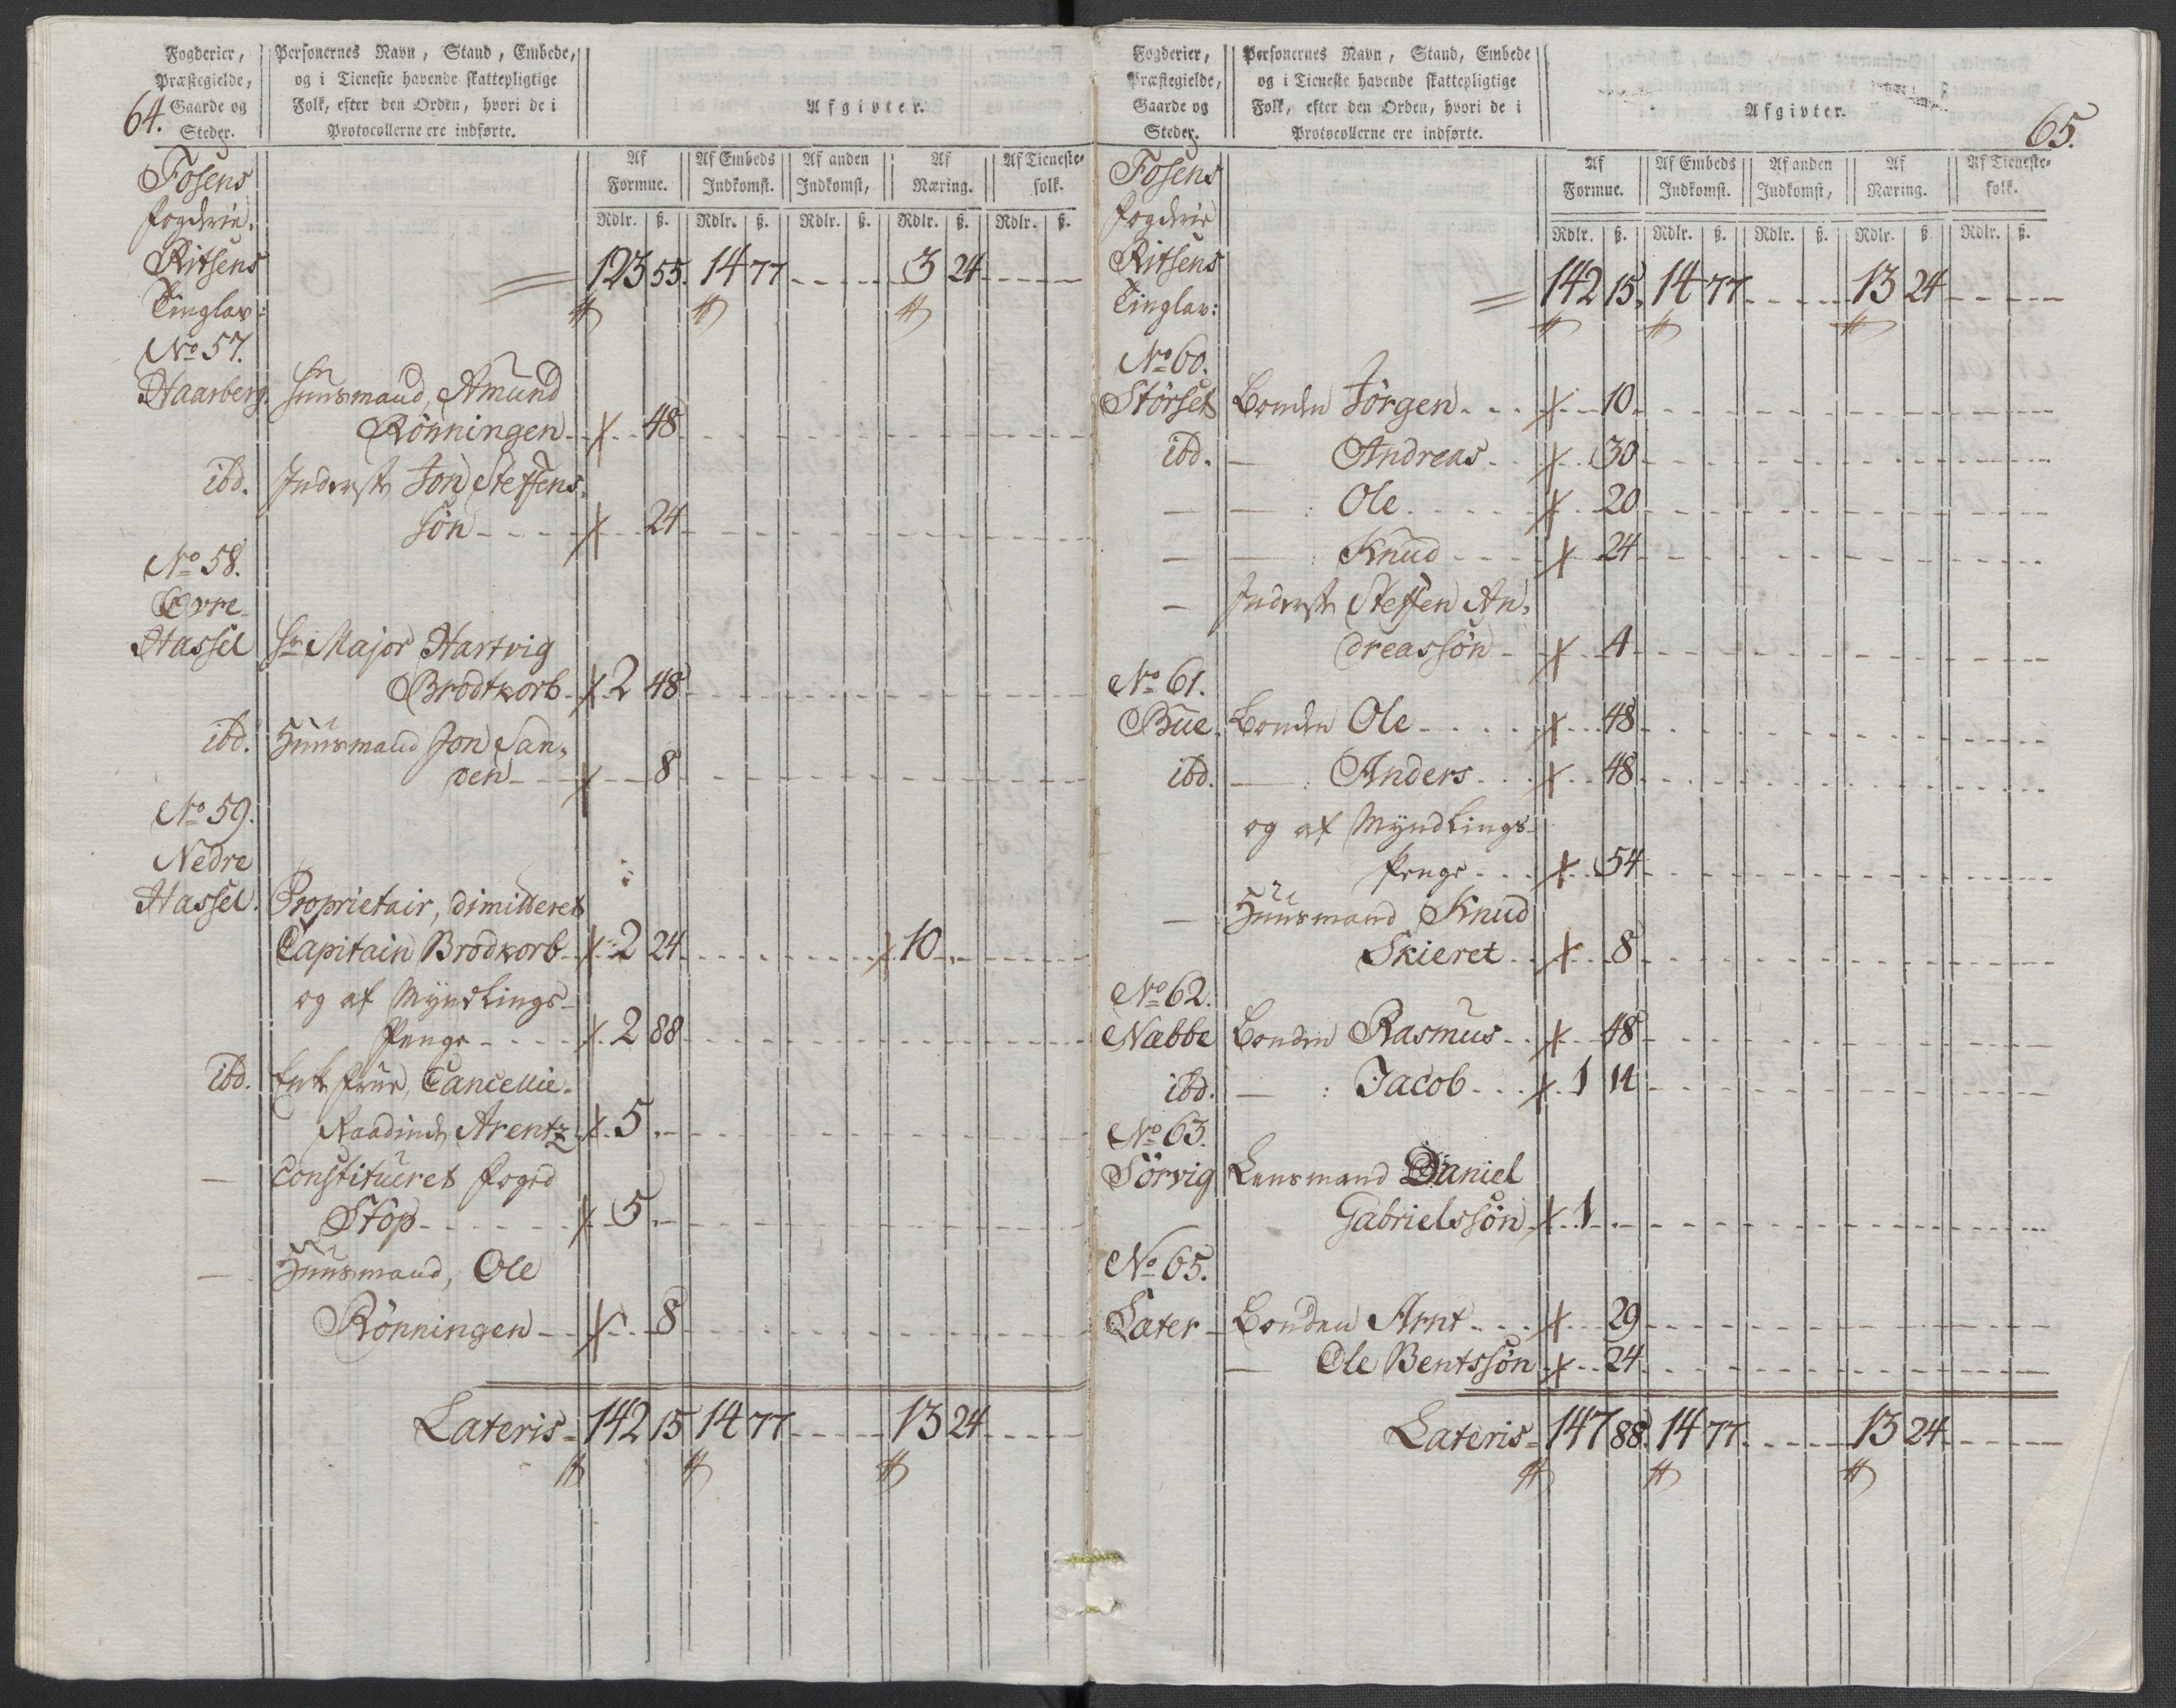 64.
Fogderier,
Præstegielde,
Gaarde og
Steder.
Personernes Navn, Stand, Embede,
og i Tieneste havende skattepligtige
Folk, efter den Orden, hvori de i
Protocollerne ere indførte.
Afgivter.
Af
Formue.
Af Embeds
Indkomst.
Af anden
Indkomst,
Af
Næring.
Af Tieneste-
folk.
Rdlr. ß. Rdlr. ß. Rdlr. ß. Rdlr. ß. Rdlr. ß.
Fosens
fogderie.
Ritsens 123 55. 14 77 3 24
Tinglav:
No 57.
Haarberg. Huusmand, Amund
Rönningen 48
ibd. Inderst Jon Steffens
sön 24
No 58.
Övre
Hassel Hr Major Hartvig
Brodtkorb 2 48
ibd. Huusmand Jon San,
den 8
No 59.
Nedre
Hassel. Proprietair, dimitteret
Capitain Brodkorb 2 24 10
og af Myndlings-
Penge 2 88
ibd. Enke frue, Cancellie-
Raadinde Arentz 5
— Constitueret foged
Stöp 5
— Huusmand, Ole
Rönningen 8
Lateris 142 15 14 77 13 24
65.
Fogderier,
Præstegielde,
Gaarde og
Steder.
Personernes Navn, Stand, Embede
og i Tieneste havende skattepligtige
Folk, efter den Orden, hvori de i
Protocollerne ere indførte.
Afgivter.
Af
Formue.
Af Embeds
Indkomst.
Af anden
Indkomst,
Af
Næring.
Af Tieneste-
folk.
Rdlr. ß. Rdlr. ß. Rdlr. ß. Rdlr. ß. Rdlr. ß.
Fosens
fogderie
Ritsens
Tinglav: 142 15. 14 77 13 24
No 60.
Störset Bonden Jörgen 10
ibd. — Andreas 30
— — : Ole 20
— — : Knud 24
— Inderst Steffen An,
dreassön 4
No 61.
Bue. Bonden Ole 48
ibd. — : Anders 48
og af Myndlings-
penge 54
— Huusmand Knud
Skieret 8
No 62.
Næbbe Bonden Rasmus 48
ibd. — : Jacob 1 14
No 63.
Sörvig Lensmand Daniel
Gabrielssön 1
No 65.
Sæter Bonden Arnt 29
— Ole Bentssön 24
Lateris 147 88. 14 77. 13 24